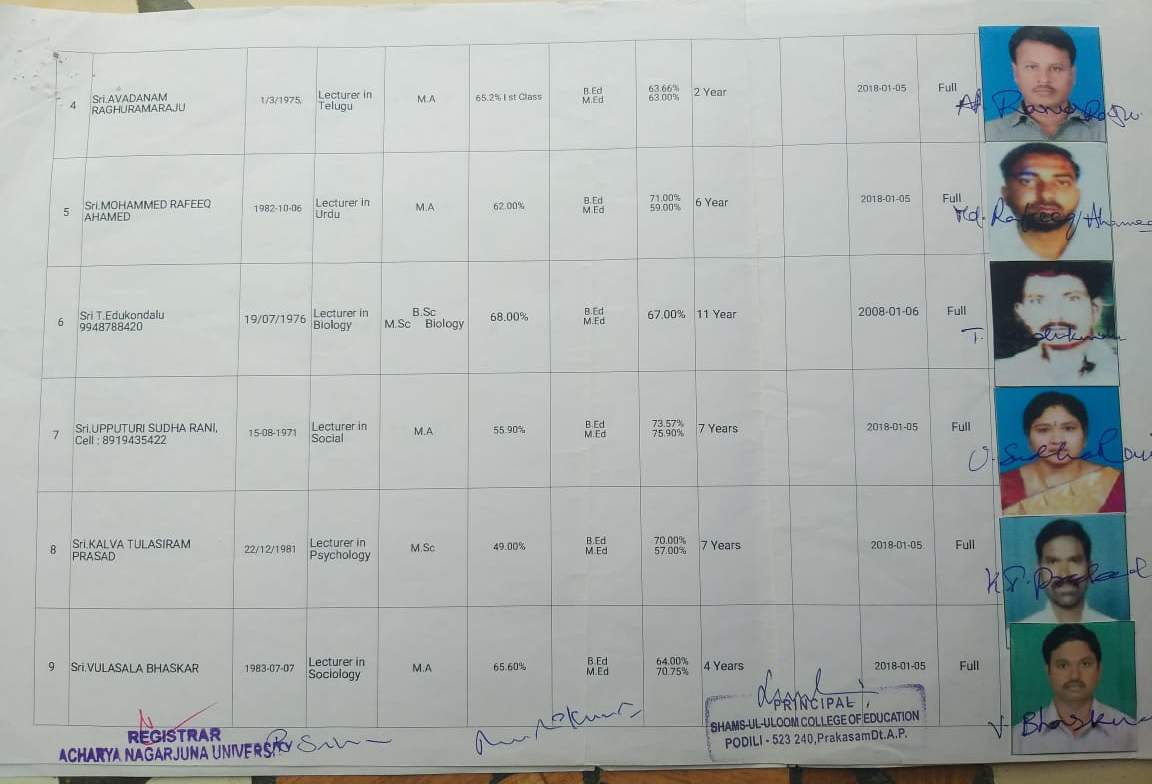 4 Sri.AVADANAM RAGHURAMARAJU 1/3/1975, Lecturer in Telugu M.A 65.2% I st Class B.Ed M.Ed 63.66% 63.00% 2 Year 2018-01-05 Full
5 Sri.MOHAMMED RAFEEQ AHAMED 1982-10-06 Lecturer in Urdu M.A 62.00% B.Ed M.Ed 71.00% 59.00% 6 Year 2018-01-05 Full
Md. Rafeeq Ahamed
6 Sri T.Edukondalu 9948788420 19/07/1976 Lecturer in Biology B.Sc M.Sc Biology 68.00% B.Ed M.Ed 67.00% 11 Year 2008-01-06 Full
7 Sri.UPPUTURI SUDHA RANI, Cell : 8919435422 15-08-1971 Lecturer in Social M.A 55.90% B.Ed M.Ed 73.57% 75.90% 7 Years 2018-01-05 Full
U. Sudha Rani
8 Sri.KALVA TULASIRAM PRASAD 22/12/1981 Lecturer in Psychology M.Sc 49.00% B.Ed M.Ed 70.00% 57.00% 7 Years 2018-01-05 Full
9 Sri.VULASALA BHASKAR 1983-07-07 Lecturer in Sociology M.A 65.60% B.Ed M.Ed 64.00% 70.75% 4 Years 2018-01-05 Full
V. Bhaskar
REGISTRAR
ACHARYA NAGARJUNA UNIVERSITY
PRINCIPAL
SHAMS-UL-ULOOM COLLEGE OF EDUCATION
PODILI - 523 240, PrakasamDt.A.P.